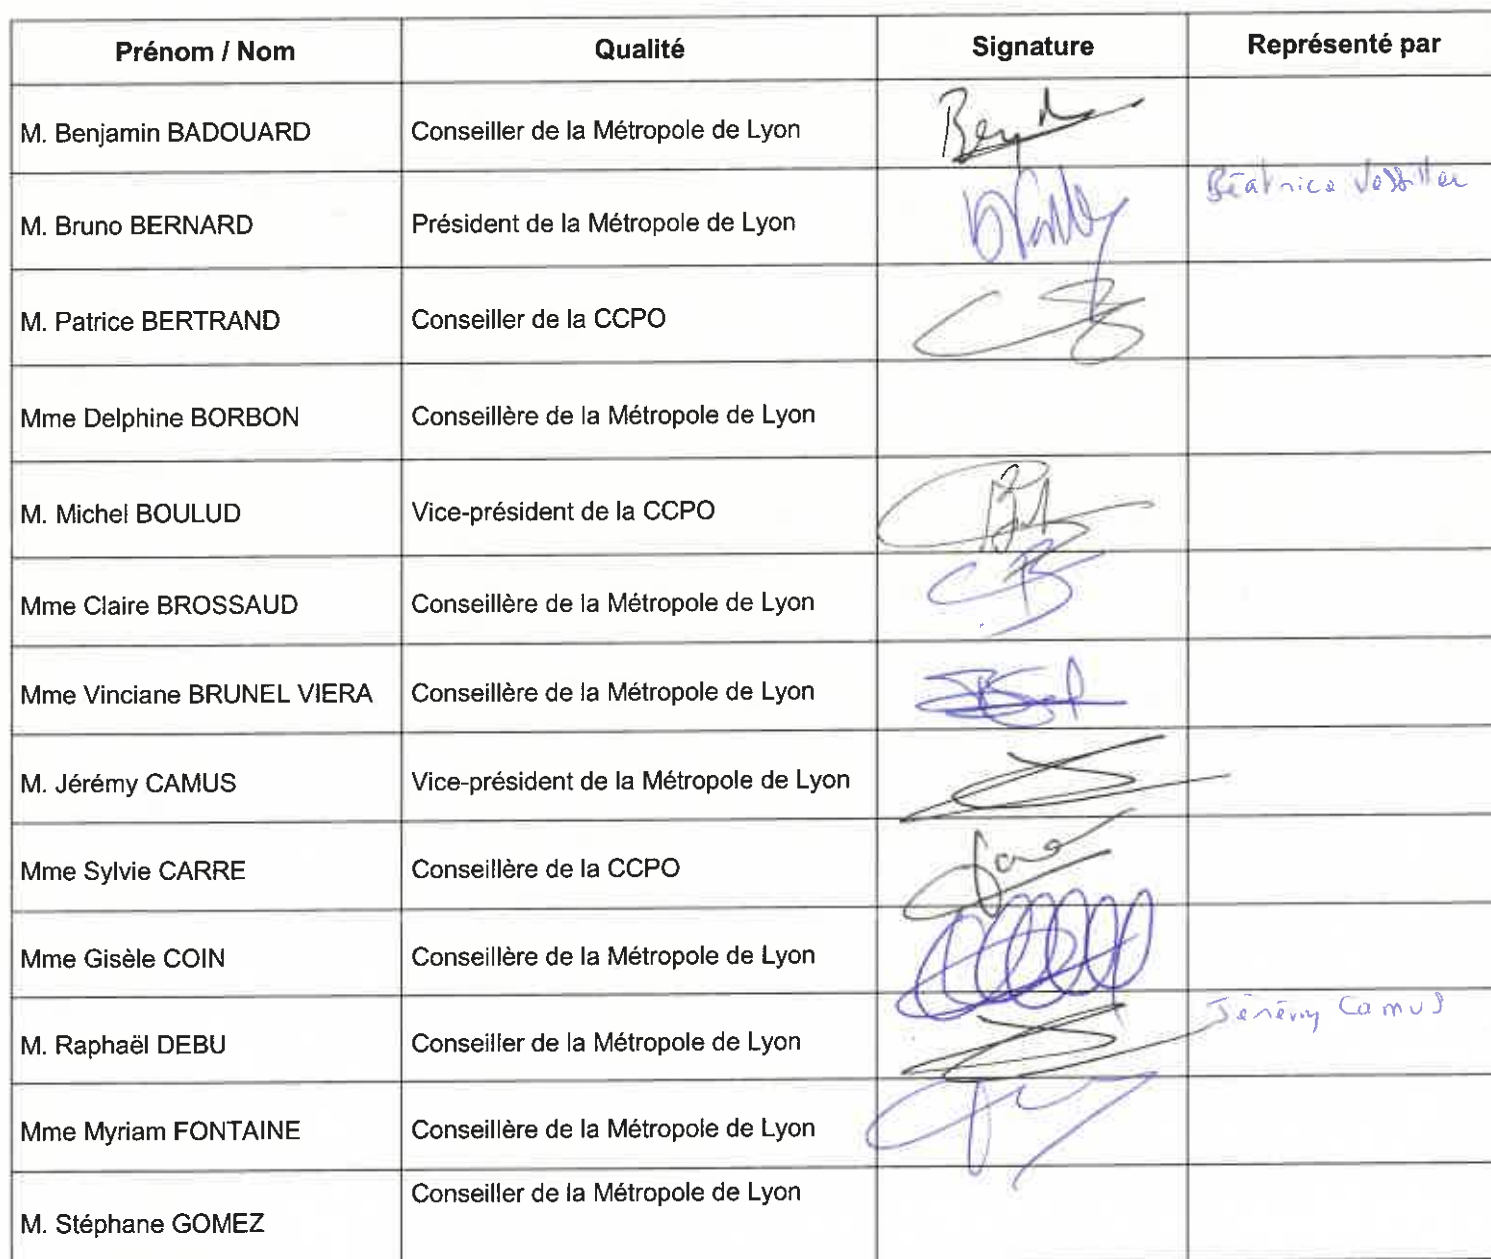 Prénom / Nom Qualité Signature Représenté par
M. Benjamin BADOUARD Conseiller de la Métropole de Lyon
M. Bruno BERNARD Président de la Métropole de Lyon Béatrice Vessiller
M. Patrice BERTRAND Conseiller de la CCPO
Mme Delphine BORBON Conseillère de la Métropole de Lyon
M. Michel BOULUD Vice-président de la CCPO
Mme Claire BROSSAUD Conseillère de la Métropole de Lyon
Mme Vinciane BRUNEL VIERA Conseillère de la Métropole de Lyon
M. Jérémy CAMUS Vice-président de la Métropole de Lyon
Mme Sylvie CARRE Conseillère de la CCPO
Mme Gisèle COIN Conseillère de la Métropole de Lyon
M. Raphaël DEBU Conseiller de la Métropole de Lyon Jérémy Camus
Mme Myriam FONTAINE Conseillère de la Métropole de Lyon
M. Stéphane GOMEZ Conseiller de la Métropole de Lyon